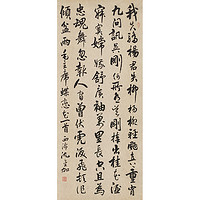 我失驕楊君失柳楊柳輕颺直上重霄
九問訊吳剛何所有吳剛捧出桂花酒
寂寞嫦娥舒廣袖萬里長空且為
忠魂舞忽報人間曾伏虎淚飛頓作
傾盆雨毛主席蝶戀花一首